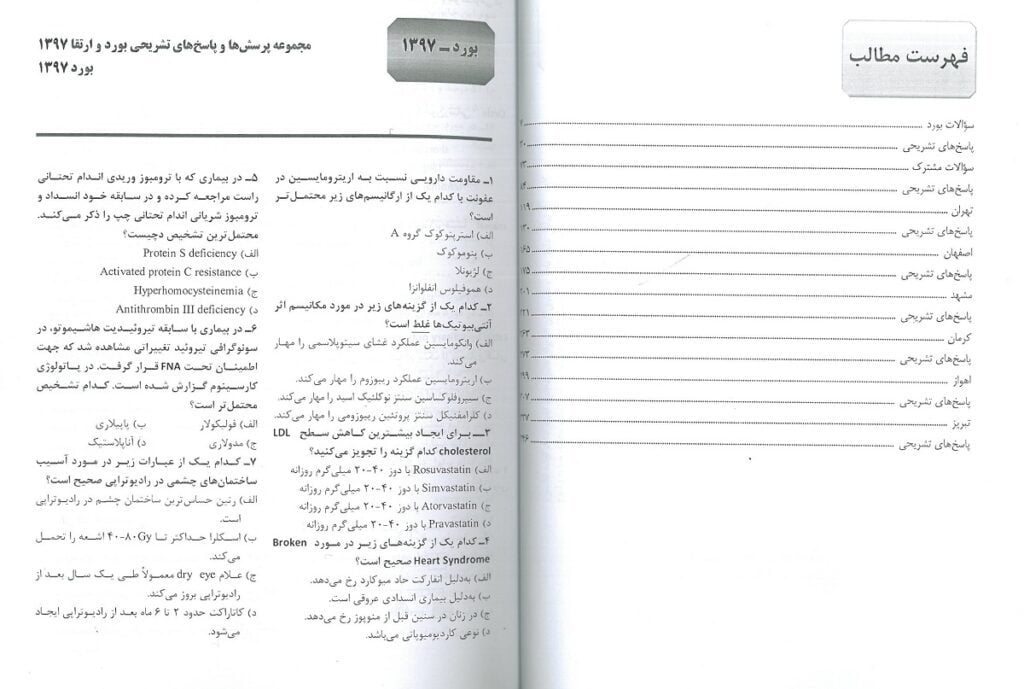 فهرست مطالب
سؤالات بورد
پاسخ‌های تشریحی
سؤالات مشترک
پاسخ‌های تشریحی
تهران
پاسخ‌های تشریحی
اصفهان
پاسخ‌های تشریحی
مشهد
پاسخ‌های تشریحی
کرمان
پاسخ‌های تشریحی
اهواز
پاسخ‌های تشریحی
تبریز
پاسخ‌های تشریحی
بورد – ۱۳۹۷
مجموعه پرسش‌ها و پاسخ‌های تشریحی بورد و ارتقا ۱۳۹۷
بورد ۱۳۹۷
۱ـ مقاومت دارویی نسبت به اریترومایسین در
عفونت با کدام یک از ارگانیسم‌های زیر محتمل‌تر
است؟
الف) استرپتوکوک گروه A
ب) پنوموکوک
ج) لژیونلا
د) هموفیلوس انفلوانزا
۲ـ کدام یک از گزینه‌های زیر در مورد مکانیسم اثر
آنتی‌بیوتیک‌ها غلط است؟
الف) وانکومایسین عملکرد غشای سیتوپلاسمی را مهار
می‌کند.
ب) اریترومایسین عملکرد ریبوزوم را مهار می‌کند.
ج) سیپروفلوکساسین سنتز نوکلئیک اسید را مهار می‌کند.
د) کلرامفنیکل سنتز پروتئین ریبوزومی را مهار می‌کند.
۳ـ برای ایجاد بیشترین کاهش سطح LDL
cholesterol کدام گزینه را تجویز می‌کنید؟
الف) Rosuvastatin با دوز ۴۰-۲۰ میلی‌گرم روزانه
ب) Simvastatin با دوز ۴۰-۲۰ میلی‌گرم روزانه
ج) Atorvastatin با دوز ۴۰-۲۰ میلی‌گرم روزانه
د) Pravastatin با دوز ۴۰-۲۰ میلی‌گرم روزانه
۴ـ کدام یک از گزینه‌های زیر در مورد Broken
Heart Syndrome صحیح است؟
الف) به‌دلیل انفارکت حاد میوکارد رخ می‌دهد.
ب) به‌دلیل بیماری انسدادی عروقی است.
ج) در زنان در سنین قبل از منوپوز رخ می‌دهد.
د) نوعی کاردیومیوپاتی می‌باشد.
۵ـ در بیماری که با ترومبوز وریدی اندام تحتانی
راست مراجعه کرده و در سابقه خود انسداد و
ترومبوز شریانی اندام تحتانی چپ را ذکر می‌کند.
محتمل‌ترین تشخیص دچیست؟
الف) Protein S deficiency
ب) Activated protein C resistance
ج) Hyperhomocysteinemia
د) Antithrombin III deficiency
۶ـ در بیماری با سابقه تیروئیدیت هاشیموتو، در
سونوگرافی تیروئید تغییراتی مشاهده شد که جهت
اطمینان تحت FNA قرار گرفت. در پاتولوژی
کارسینوم گزارش شده است. کدام تشخیص
محتمل‌تر است؟
الف) فولیکولار ب) پاپیلاری
ج) مدولاری د) آناپلاستیک
۷ـ کدام یک از عبارات زیر در مورد آسیب
ساختمان‌های چشمی در رادیوتراپی صحیح است؟
الف) رتین حساس‌ترین ساختمان چشم در رادیوتراپی
است.
ب) اسکلرا حداکثر تا ۴۰-۸۰Gy اشعه را تحمل
می‌کند.
ج) علائم dry eye معمولاً طی یک سال بعد از
رادیوتراپی بروز می‌کند.
د) کاتاراکت حدود ۲ تا ۶ ماه بعد از رادیوتراپی ایجاد
می‌شود.